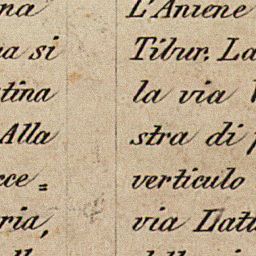 na
a si
tina
Alla
cce=
ria,
L'Aniene
Tibur. La
la via
stra di
verticulo
via Lat